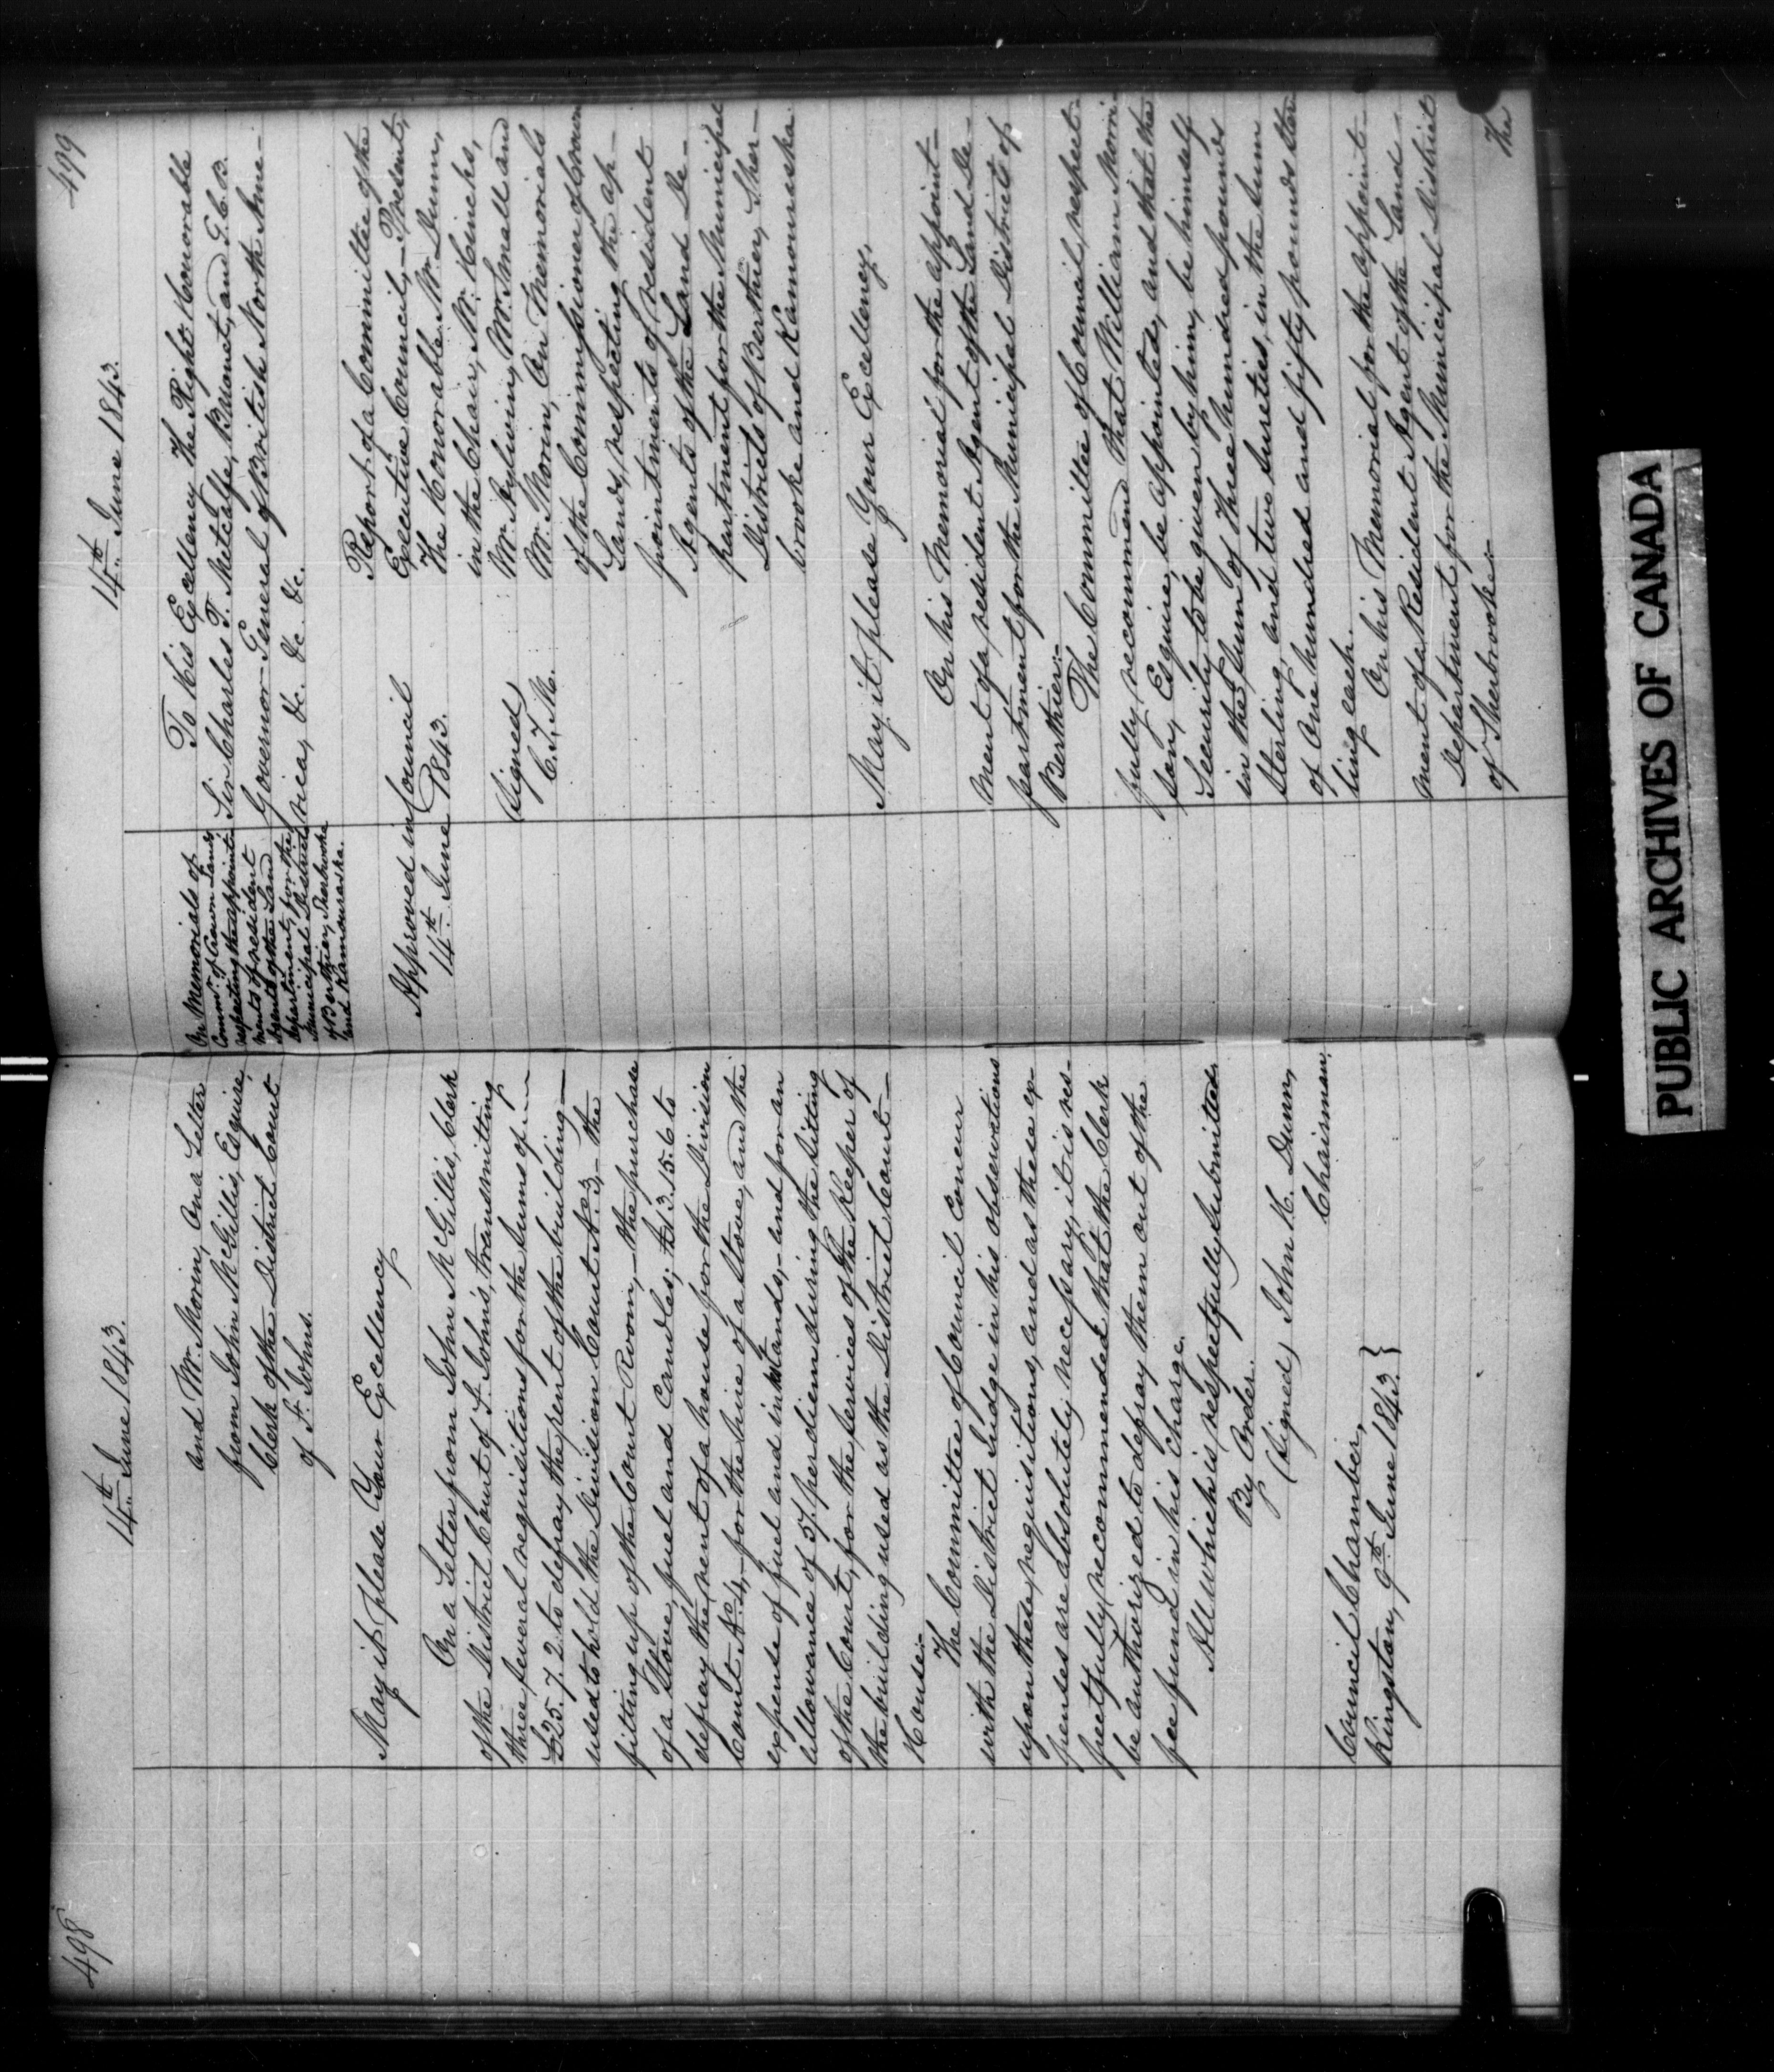 498
14th June 1843.
and Mr. Morin, On a Letter
from John McGillis, Esquire,
Clerk of the District Court
of St. Johns.
May it please Your Excellency
On a Letter from John McGillis, Clerk
of the District Court of St. Johns, transmitting
three several requisitions for the sums of —
£25. 7. 2 to defray the rent of the building —
used to hold the Division Court No. 3, — the
fitting up of the Court Room, — the purchase
of a Stove, fuel and Candles; £13. 15. 6 to
defray the rent of a house for the Division
Court No. 4, — for the hire of a Stove, and the
expense of fuel and inkstands, — and for an
allowance of 5/. per diem during the sitting
of the Court, for the services of the Keeper of
the building used as the District Court —
House:—
The Committee of Council concur
with the District Judge in his observations
upon these requisitions, and as these ex-
penses are absolutely necessary, it is res-
pectfully recommended that the Clerk
be authorized to defray them out of the
fee fund in his charge.
All which is respectfully submitted.
By Order.
(Signed) John H. Dunn,
Chairman.
Council Chamber,
Kingston, 9th June 1843. }
499
14th June 1843.
On Memorials of
Commr. of Crown Lands
respecting the appoint-
ments of resident
Agents of the Land
Department, for the
Municipal Districts
of Berthier, Sherbrooke
and Kamouraska.
To His Excellency The Right Honorable
Sir Charles T. Metcalfe, Baronet, and G.C.B.
Governor General of British North Ame-
rica, &c. &c. &c.
Approved in Council
14th June 1843.
(Signed)
C. T. M.
Report of a Committee of the
Executive Council, — Present,
The Honorable Mr. Dunn,
in the Chair, Mr. Hincks,
Mr. Aylwin, Mr. Small and
Mr. Morin, On Memorials
of the Commissioner of Crown
Lands, respecting the ap-
pointments of resident
Agents of the Land De-
partment for the Municipal
Districts of Berthier, Sher-
brooke and Kamouraska.
May it please Your Excellency,
On his Memorial for the appoint-
ment of a resident Agent of the Land De-
partment for the Municipal District of
Berthier:—
The Committee of Council, respect-
fully recommend that William Morri-
son, Esquire, be appointed, and that the
Security to be given by him, be himself
in the Sum of Three hundred pounds
Sterling, and two Sureties, in the Sum
of One hundred and fifty pounds Ster-
ling each.
On his Memorial for the appoint-
ment of a Resident Agent of the Land —
Department for the Municipal District
of Sherbrooke:—
The
PUBLIC ARCHIVES OF CANADA